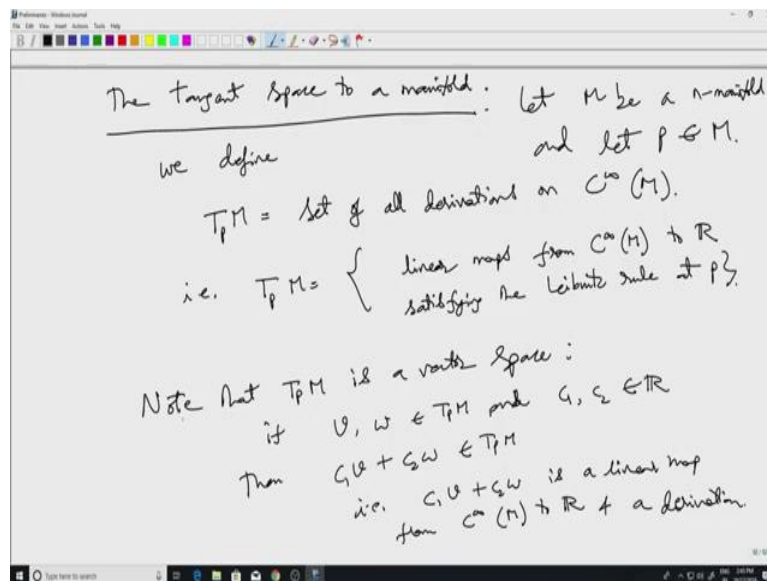 Preliminaries - Windows Journal
File Edit View Insert Actions Tools Help
The tangent space to a manifold : Let M be a n-manifold
and let p ∈ M.
we define
TpM = Set of all derivations on C^∞(M).
i.e. TpM = { linear maps from C^∞(M) to ℝ
satisfying the Leibnitz rule at p}.
Note that TpM is a vector space :
if v, w ∈ TpM and c₁, c₂ ∈ ℝ
Then c₁v + c₂w ∈ TpM
i.e. c₁v + c₂w is a linear map
from C^∞(M) to ℝ & a derivation.
Type here to search